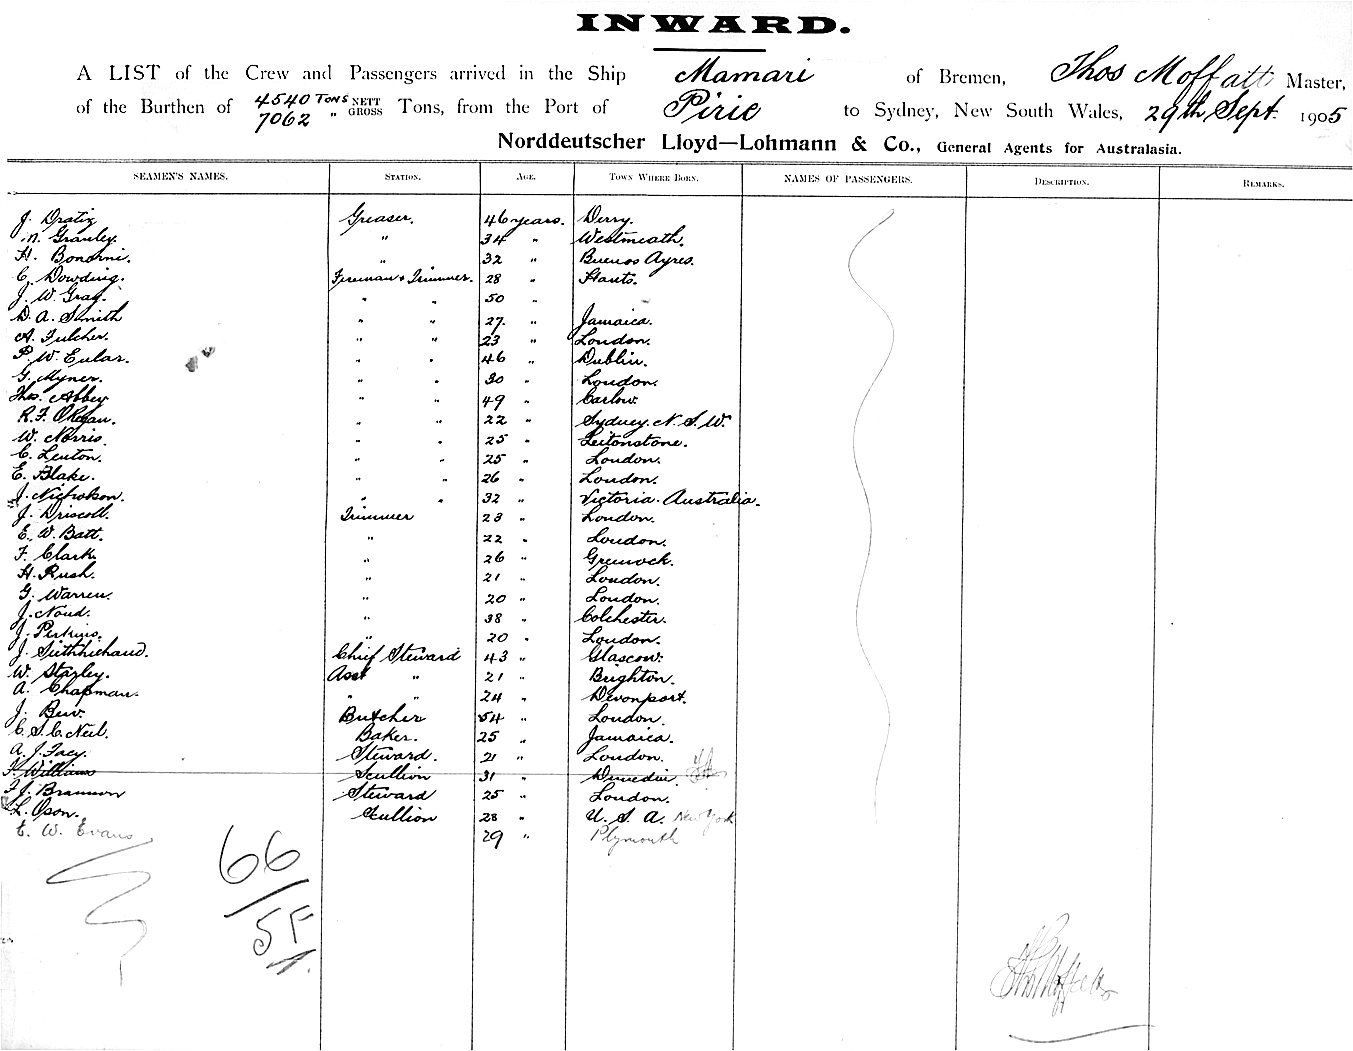 INWARD.
A LIST of the Crew and Passengers arrived in the Ship Mamari of Bremen, Thos Moffatt Master,
of the Burthen of 4540 Tons NETT 7062 " GROSS Tons, from the Port of Pirie to Sydney, New South Wales, 29th Sept. 1905
Norddeutscher Lloyd—Lohmann & Co., General Agents for Australasia.
SEAMEN'S NAMES. STATION. AGE. TOWN WHERE BORN. NAMES OF PASSENGERS. DESCRIPTION. REMARKS.
J. Greaser. 46 years. Derry.
N. " 34 " Westmeath.
H. " 32 " Buenos Ayres.
C. Dowding. Fireman & Trimmer. 28 " Hants.
J. W. Gray. " " 50 "
D. A. Smith " " 27. " Jamaica.
A. Fulcher. " " 23 " London.
P. W. Eular. " " 46 " Dublin.
G. Myner. " " 30 " London.
Thos. Abbey " " 49 " Carlow.
R. F. O'Regan. " " 22 " Sydney. N. S. W.
W. Norris. " " 25 " Leitonstone.
C. Lenton. " " 25 " London.
E. Blake. " " 26 " London.
J. Nicholson. " " 32 " Victoria. Australia.
J. Driscoll. Trimmer 23 " London.
E. W. Batt. " 22 " London.
F. Clark. " 26 " Greenock.
H. Rush. " 21 " London.
G. Warren. " 20 " London.
J. Noud. " 38 " Colchester.
J. Perkins. " 20 " London.
J. Chief Steward 43 " Glascow.
W. Starley. Asst " 21 " Brighton.
A. Chapman. " " 24 " Devonport.
J. Butcher 54 " London.
C. S. C. Neil. Baker. 25 " Jamaica.
A. J. Facy. Steward. 21 " London.
F. Williams Scullion 31 " Dunedin
F. J. Brannon Steward 25 " London.
L. Oson. Scullion 28 " U. S. A. New York
E. W. Evans 29 " Plymouth
66